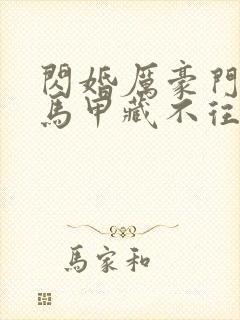 閃婚厲豪門
馬甲藏不往
馬家和